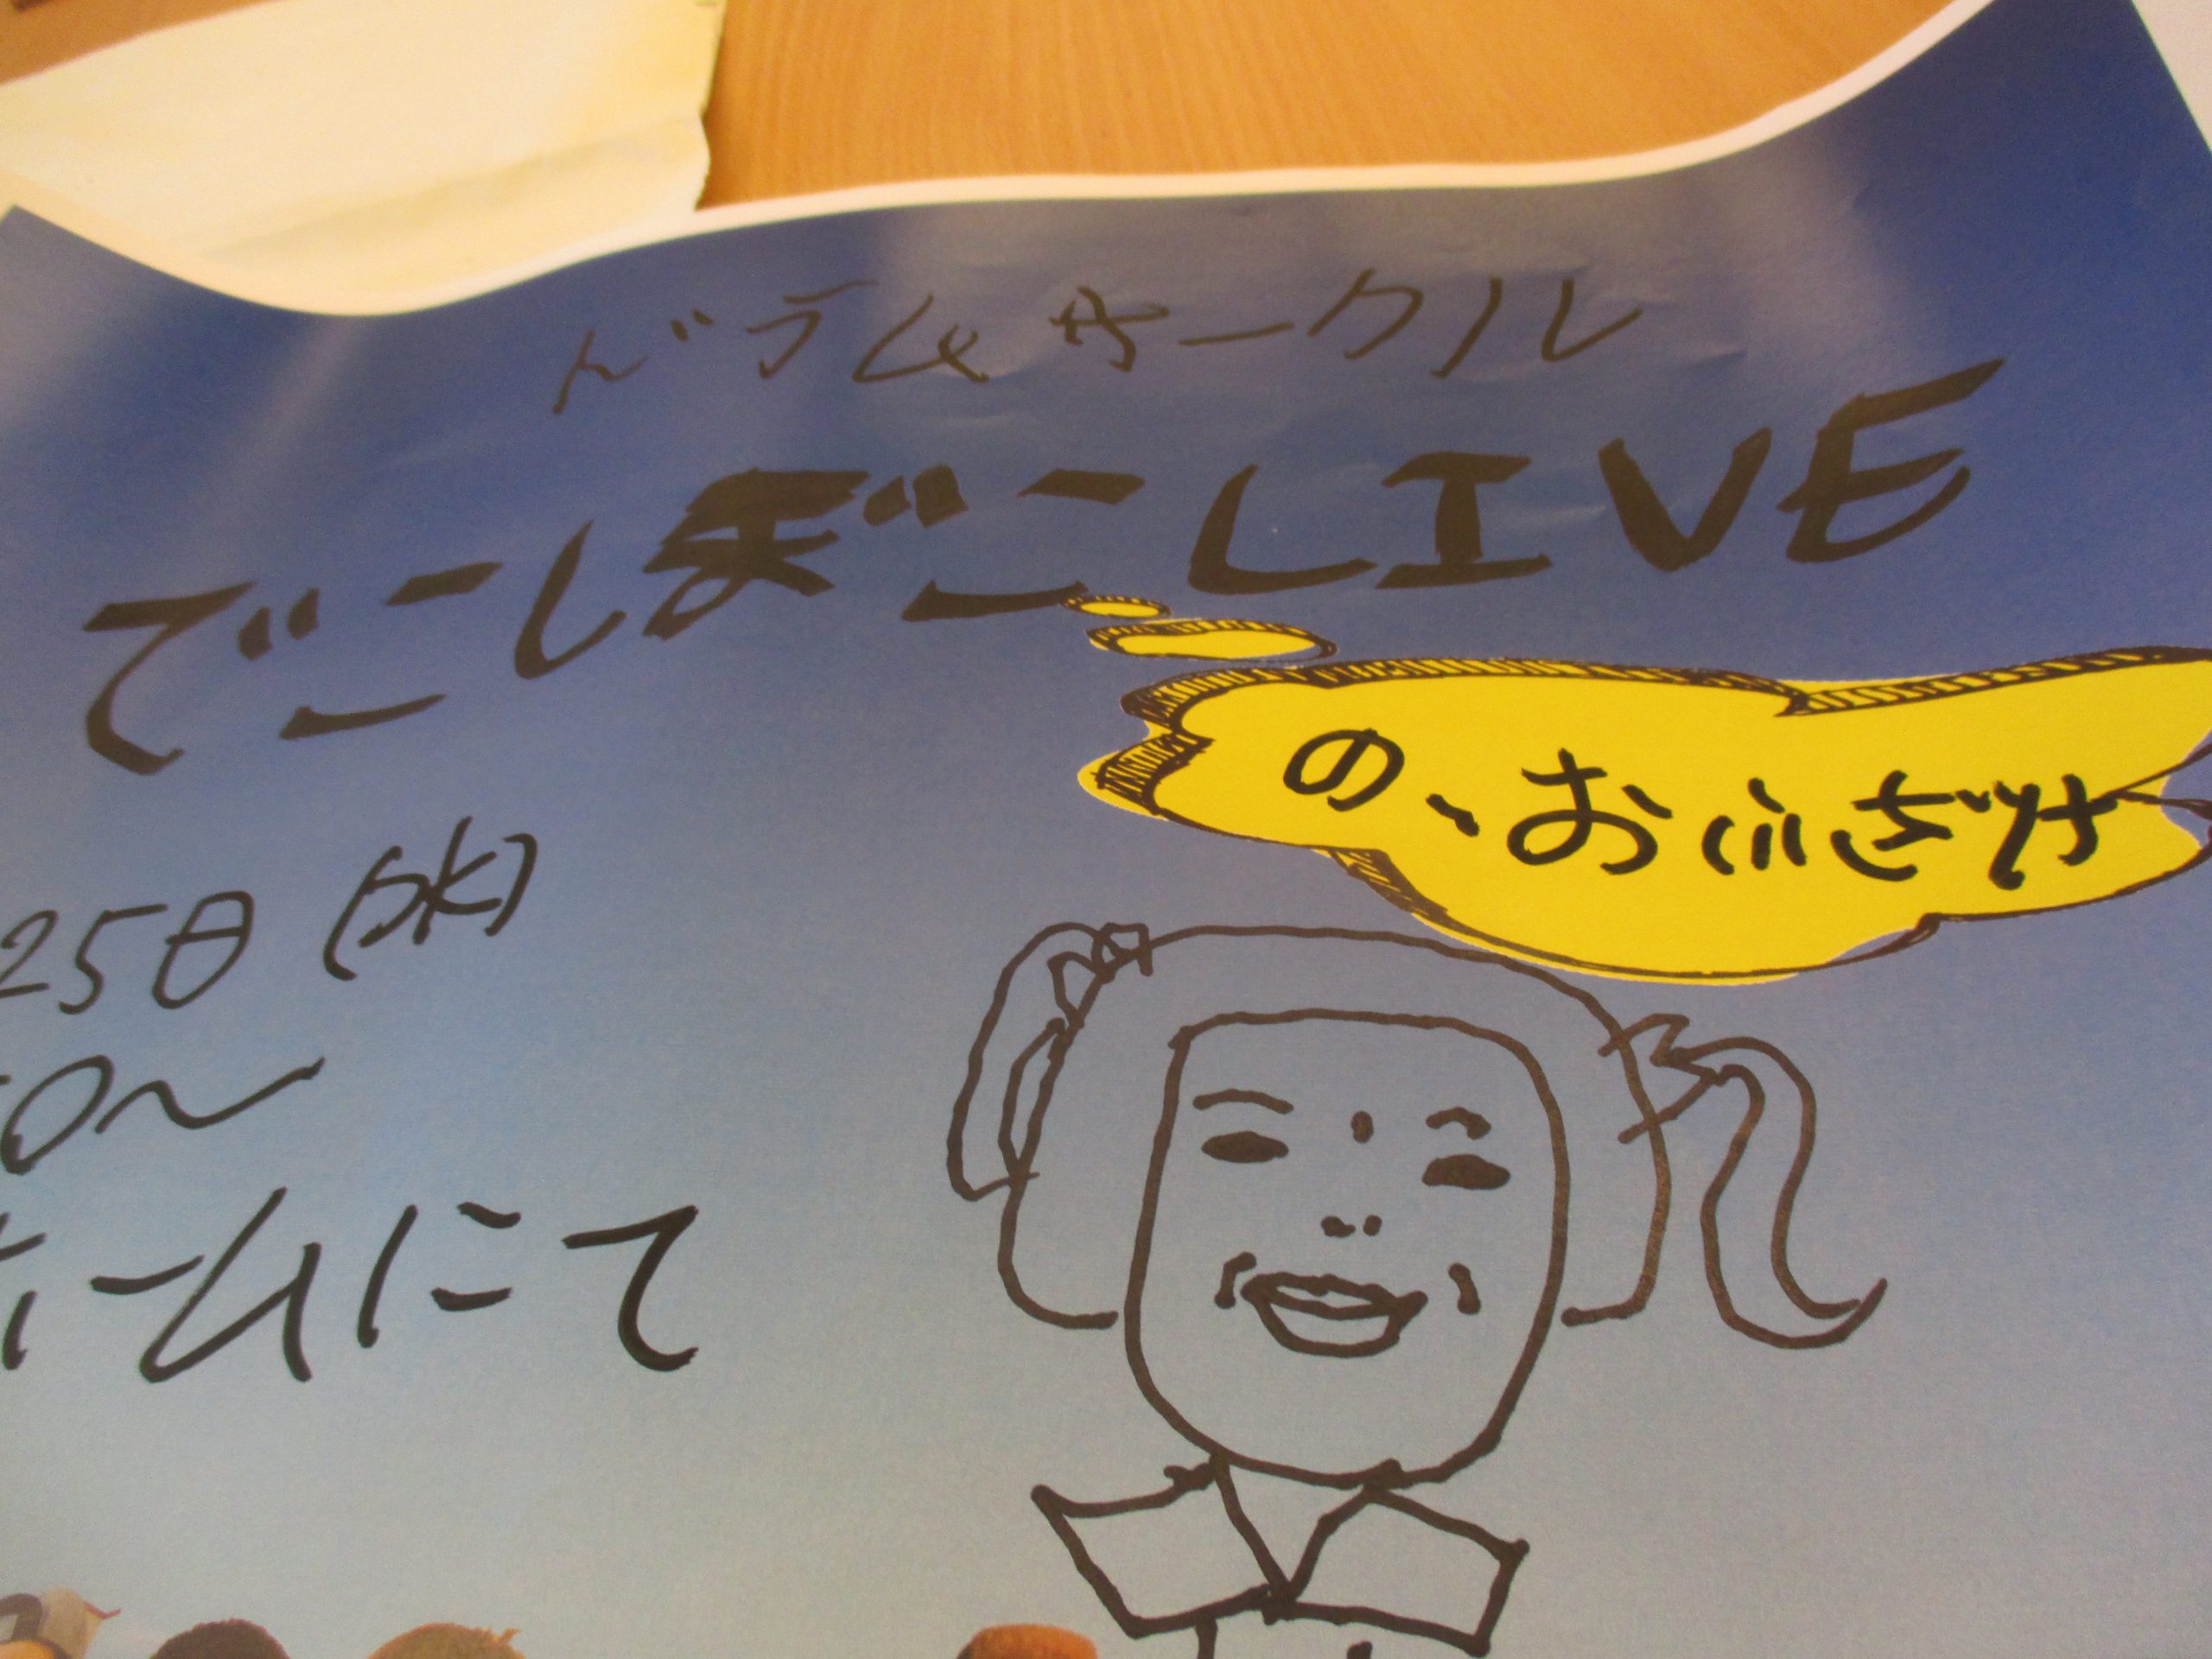 ドラムサークル
でこぼこLIVE
の、おふざけ
25日(水)
0〜
ホームにて